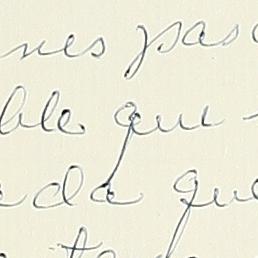 nes pas
ble que
da que